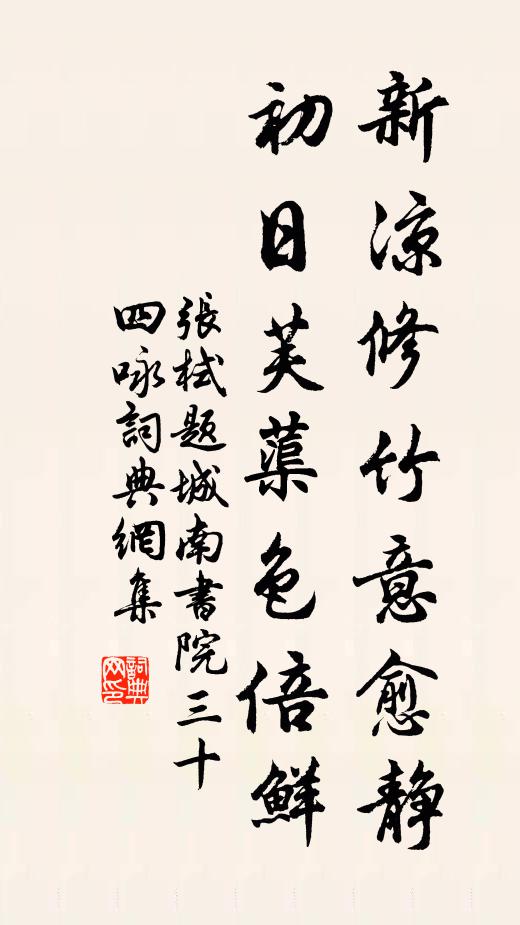 新涼修竹意愈静
初日芙蕖色倍鮮
張栻題城南書院三十
四咏詞典網集
詞典网印